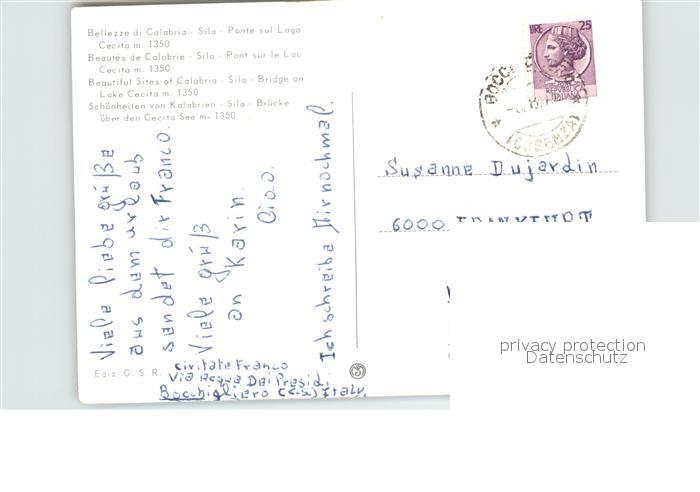 Bellezze di Calabria - Sila - Ponte sul Lago
Cecita m. 1350
Beautés de Calabrie - Sila - Pont sur le Lac
Cecita m. 1350
Beautiful Sites of Calabria - Sila - Bridge on
Lake Cecita m. 1350
Schönheiten von Kalabrien - Sila - Brücke
über den Cecita See m. 1350
Viele liebe grüße
aus dem urlaub
sendet dir Franco.
Viele grüß
an Karin.
Ciao.
Ich schreibe Dir nochmal.
civitate Franco
Via Acqua Dei Presidi.
Bocchigliero (Cs) Italy.
Ediz. G. S. R.
LIRE 25
(COSENZA)
Susanne Dujardin
6000 FRANKFURT
privacy protection
Datenschutz